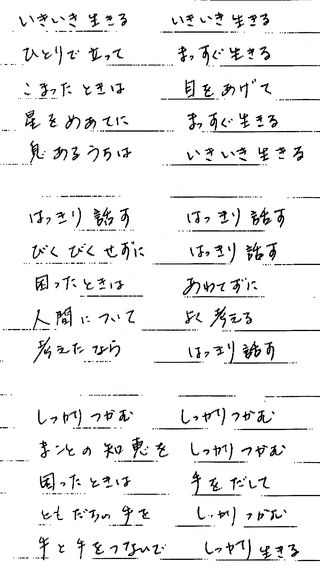 いきいき生きる　いきいき生きる
ひとりで立って　まっすぐ生きる
こまったときは　目をあげて
星をめあてに　まっすぐ生きる
息あるうちは　いきいき生きる
はっきり話す　はっきり話す
びくびくせずに　はっきり話す
困ったときは　あわてずに
人間について　よく考える
考えたなら　はっきり話す
しっかりつかむ　しっかりつかむ
まことの知恵を　しっかりつかむ
困ったときは　手をだして
ともだちの手を　しっかりつかむ
手と手をつないで　しっかり生きる